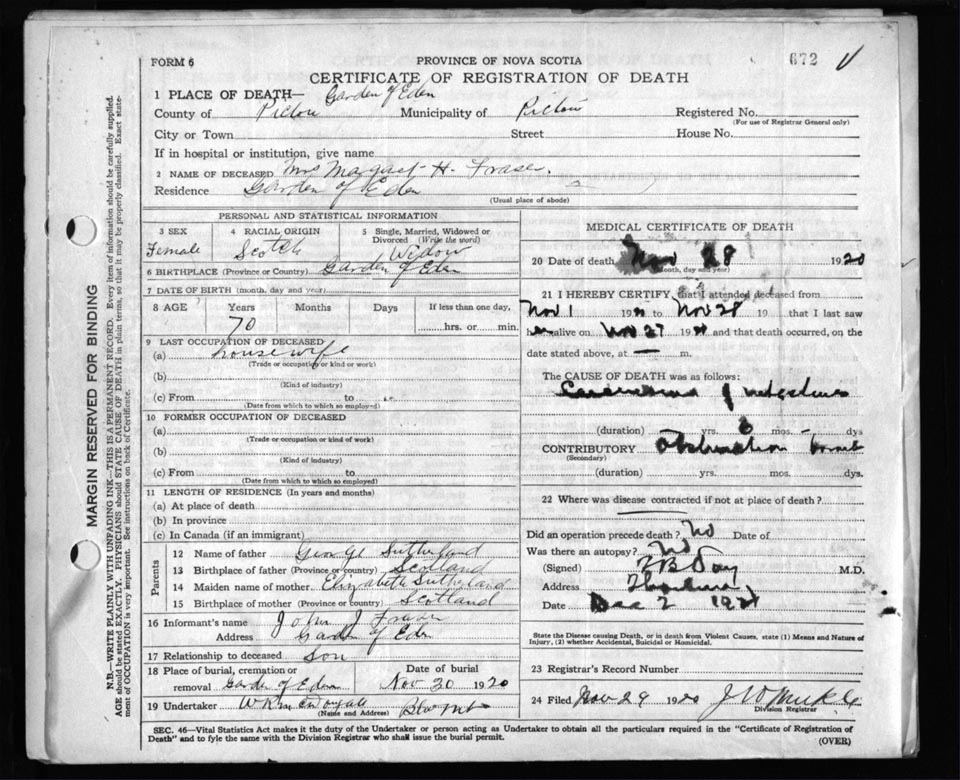 FORM 6
PROVINCE OF NOVA SCOTIA
672
CERTIFICATE OF REGISTRATION OF DEATH
1 PLACE OF DEATH— Garden of Eden
County of Pictou Municipality of Pictou Registered No.
(For use of Registrar General only)
City or Town Street House No.
If in hospital or institution, give name
2 NAME OF DECEASED Mrs Margaret H. Fraser.
Residence Garden of Eden
(Usual place of abode)
PERSONAL AND STATISTICAL INFORMATION
3 SEX 4 RACIAL ORIGIN 5 Single, Married, Widowed or
Divorced (Write the word)
Female Scotch Widow
6 BIRTHPLACE (Province or Country) Garden of Eden
7 DATE OF BIRTH (month, day and year)
8 AGE Years Months Days If less than one day,
70 hrs. or min.
9 LAST OCCUPATION OF DECEASED
(a) housewife
(Trade or occupation or kind of work)
(b)
(Kind of industry)
(c) From to
(Date from which to which so employed)
10 FORMER OCCUPATION OF DECEASED
(a)
(Trade or occupation or kind of work)
(b)
(Kind of industry)
(c) From to
(Date from which to which so employed)
11 LENGTH OF RESIDENCE (In years and months)
(a) At place of death
(b) In province
(c) In Canada (if an immigrant)
Parents
12 Name of father George Sutherland
13 Birthplace of father (Province or country) Scotland
14 Maiden name of mother Elizabeth Sutherland
15 Birthplace of mother (Province or country) Scotland
16 Informant's name John J Fraser
Address Garden of Eden
17 Relationship to deceased Son
18 Place of burial, cremation or Date of burial
removal Garden of Eden Nov 30 1920
19 Undertaker
(Name and Address)
MEDICAL CERTIFICATE OF DEATH
20 Date of death Nov 28 1920
(Month, day and year)
21 I HEREBY CERTIFY, that I attended deceased from
Nov 1 19 to Nov 28 19 that I last saw
alive on Nov 27 19 and that death occurred, on the
date stated above, at — m.
The CAUSE OF DEATH was as follows:
Carcinoma of intestines
(duration) yrs. 6 mos. - dys
CONTRIBUTORY Obstruction
(Secondary)
(duration) yrs. mos. dys.
22 Where was disease contracted if not at place of death?
Did an operation precede death? No Date of
Was there an autopsy? No
(Signed) M.D.
Address Thorburn
Date Dec 2 19
State the Disease causing Death, or in death from Violent Causes, state (1) Means and Nature of
Injury, (2) whether Accidental, Suicidal or Homicidal.
23 Registrar's Record Number
24 Filed Nov 29 1920
Division Registrar
SEC. 46—Vital Statistics Act makes it the duty of the Undertaker or person acting as Undertaker to obtain all the particulars required in the "Certificate of Registration of
Death" and to fyle the same with the Division Registrar who shall issue the burial permit. (OVER)
MARGIN RESERVED FOR BINDING
N.B.—WRITE PLAINLY WITH UNFADING INK—THIS IS A PERMANENT RECORD. Every item of information should be carefully supplied.
AGE should be stated EXACTLY. PHYSICIANS should STATE CAUSE OF DEATH in plain terms, so that it may be properly classified. Exact state-
ment of OCCUPATION is very important. See instructions on back of Certificate.